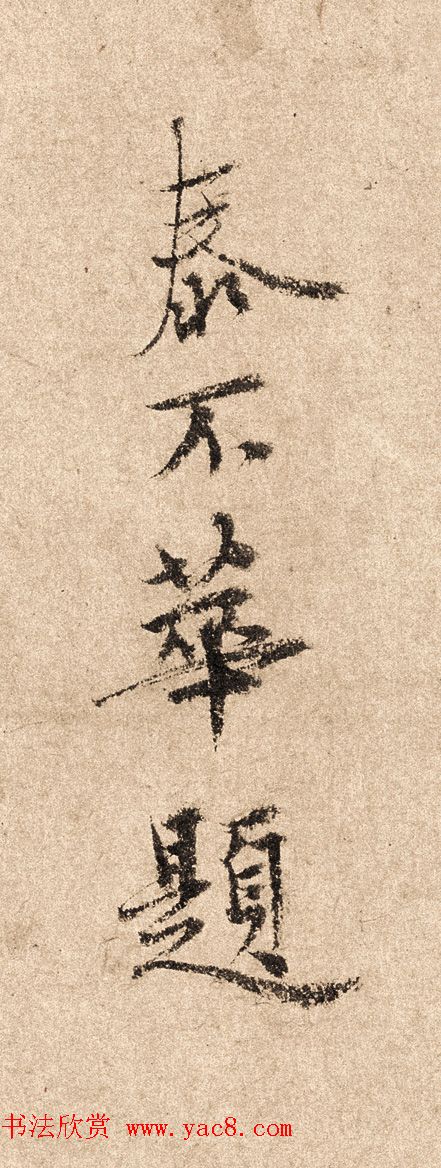 泰不華題
书法欣赏 www.yac8.com